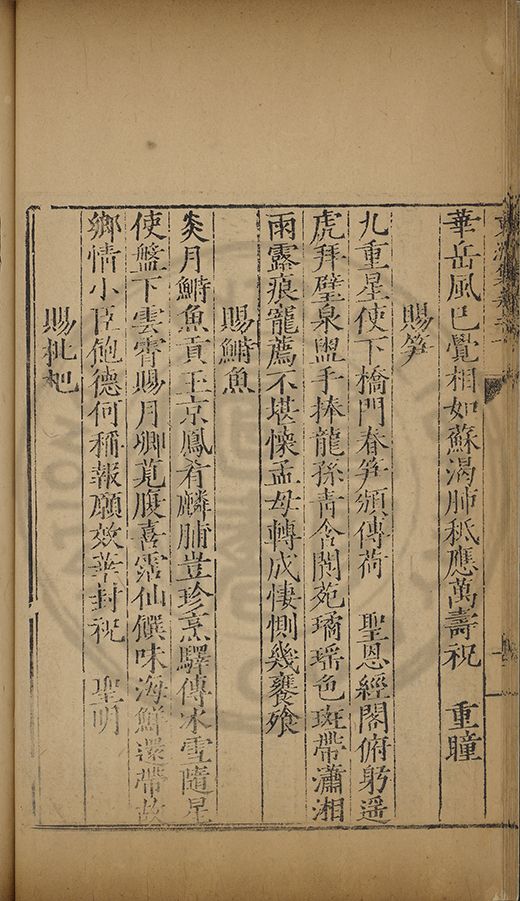 華岳風已覺相如蘇渴肺秪應萬壽祝　重瞳
賜笋
九重星使下橋門春笋頒傳荷　聖恩經閣俯躬遥
虎拜璧泉盥手捧龍孫青含閬苑璚瑶色斑帶瀟湘
雨露痕寵薦不堪懷孟母轉成悽惻幾饔飱
賜鰣魚
炎月鰣魚貢玉京鳳肴麟脯豈珍烹驛傳冰雪隨星
使盤下雲霄賜月卿莧腹喜霑仙饌味海鮮還帶故
鄉情小臣飽德何稱報願效華封祝　聖明
賜枇杷